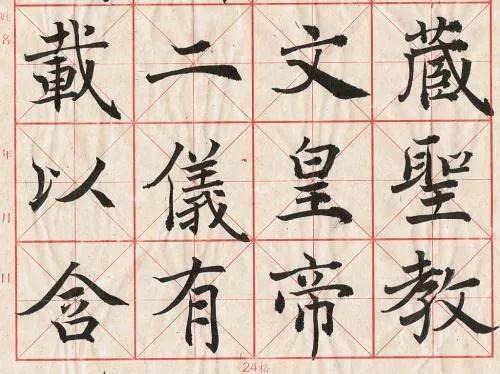 藏聖教
文皇帝
二儀有
載以含
姓名
年
月
日
24格